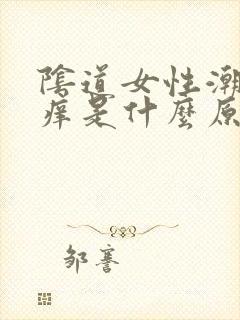 陰道女性潮
痒是什麼原
邹謇